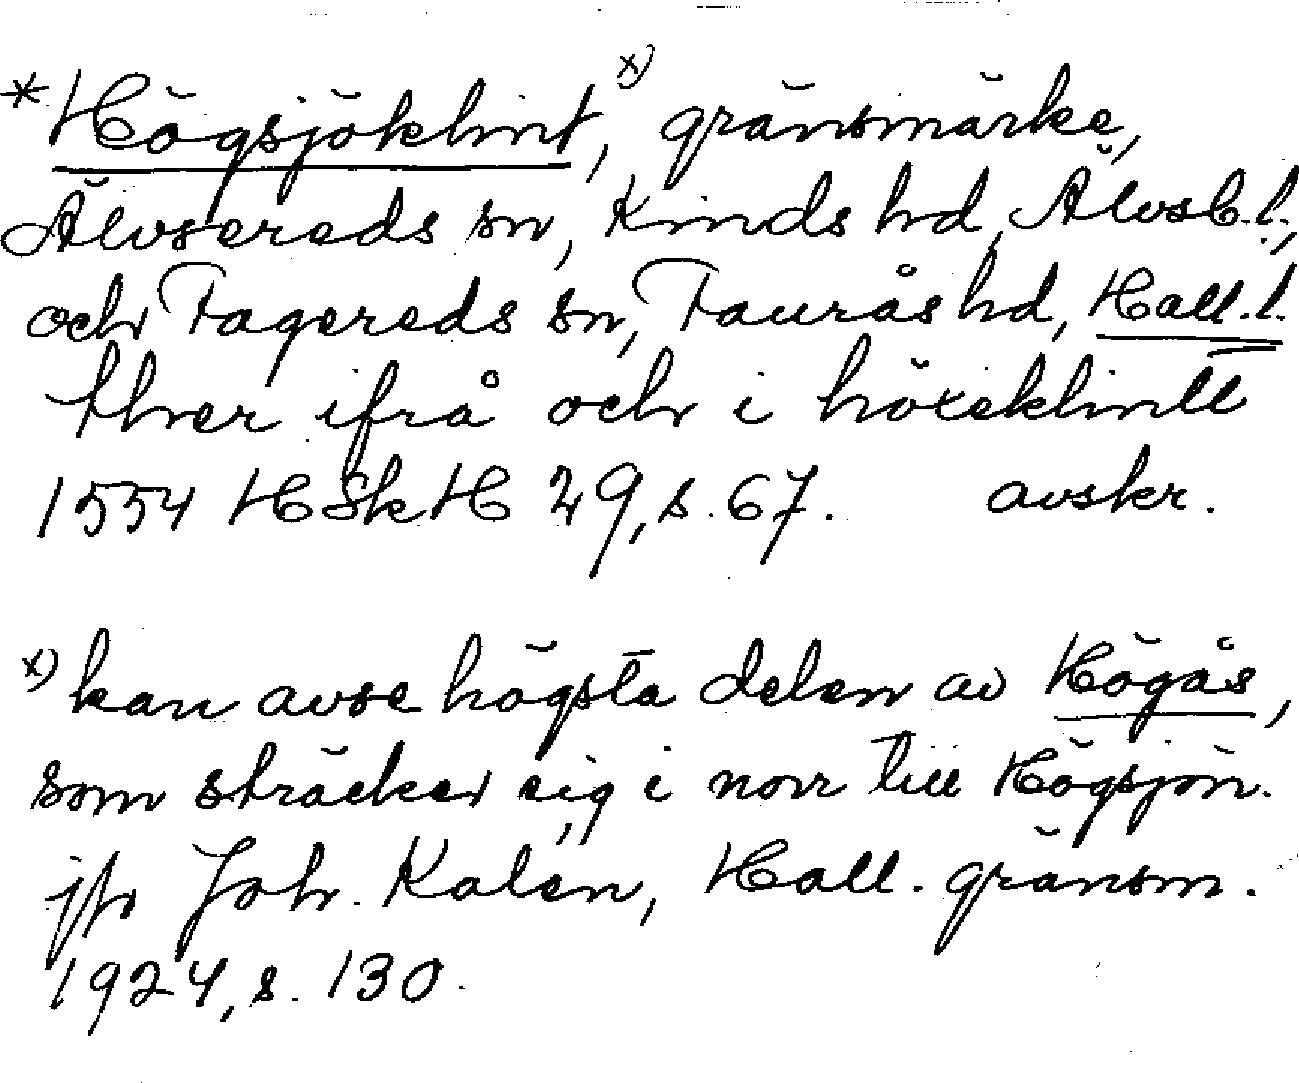 *Högsjöklint, x) gränsmärke,
Älvsereds sn, Kinds hd, Älvsb.l.,
och Fagereds sn, Faurås hd, Hall.l.
ther ifrå och i höxeklintt
1554 HSkH 29, s. 67. avskr.
x) kan avse högsta delen av Högås,
som sträcker sig i norr till Högsjön.
jfr Joh. Kalén, Hall. gränsm.
1924, s. 130.